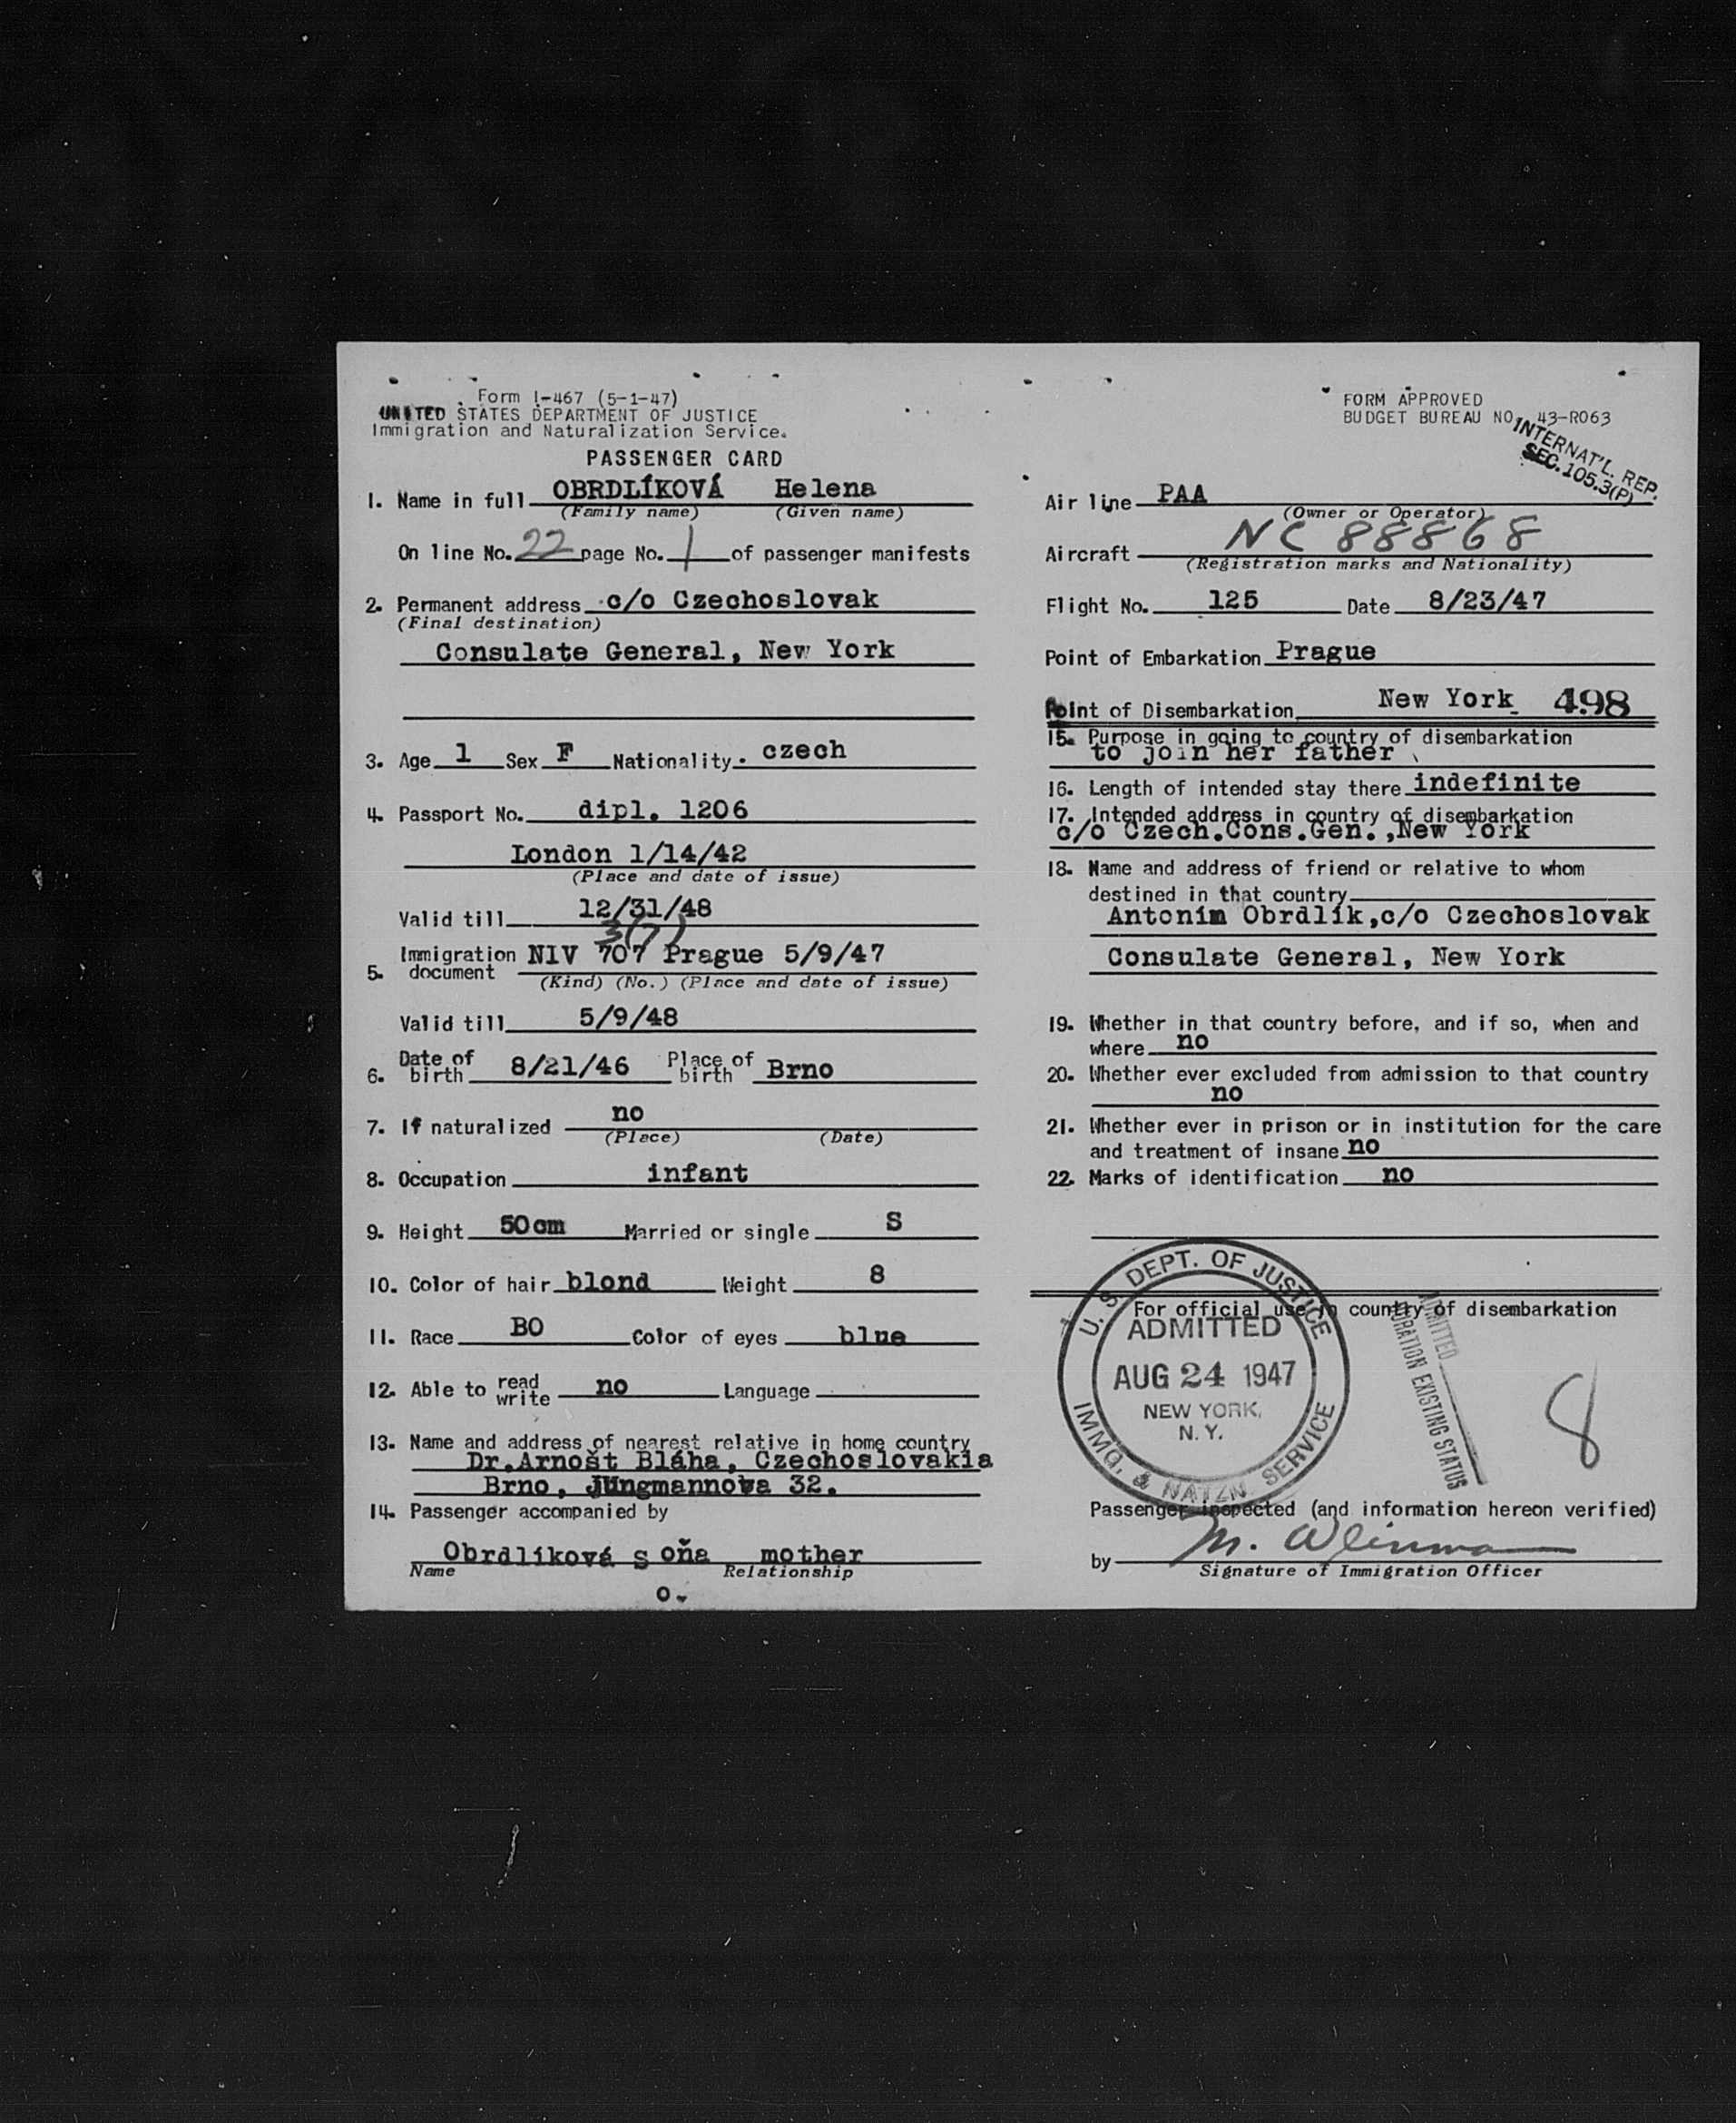 Form I-467 (5-1-47)
UNITED STATES DEPARTMENT OF JUSTICE
Immigration and Naturalization Service.
PASSENGER CARD
1. Name in full OBRDLÍKOVÁ Helena
(Family name) (Given name)
On line No. 22 page No. 1 of passenger manifests
2. Permanent address c/o Czechoslovak
(Final destination)
Consulate General, New York
3. Age 1 Sex F Nationality. czech
4. Passport No. dipl. 1206
London 1/14/42
(Place and date of issue)
Valid till 12/31/48
3(7)
5. Immigration document NIV 707 Prague 5/9/47
(Kind) (No.) (Place and date of issue)
Valid till 5/9/48
6. Date of birth 8/21/46 Place of birth Brno
7. If naturalized no
(Place) (Date)
8. Occupation infant
9. Height 50cm Married or single S
10. Color of hair blond Weight 8
11. Race BO Color of eyes blue
12. Able to read write no Language
13. Name and address of nearest relative in home country
Dr.Arnošt Bláha, Czechoslovakia
Brno, Jungmannova 32.
14. Passenger accompanied by
Obrdlíková s oňa mother
Name Relationship
o.
FORM APPROVED
BUDGET BUREAU NO. 43-R063
INTERNAT'L. REP.
SEC.105.3(P)
Air line PAA
(Owner or Operator)
Aircraft NC 88868
(Registration marks and Nationality)
Flight No. 125 Date 8/23/47
Point of Embarkation Prague
Point of Disembarkation New York 498
15. Purpose in going to country of disembarkation
to join her father
16. Length of intended stay there indefinite
17. Intended address in country of disembarkation
c/o Czech.Cons.Gen.,New York
18. Name and address of friend or relative to whom
destined in that country
Antonín Obrdlík,c/o Czechoslovak
Consulate General, New York
19. Whether in that country before, and if so, when and
where no
20. Whether ever excluded from admission to that country
no
21. Whether ever in prison or in institution for the care
and treatment of insane no
22. Marks of identification no
For official use in country of disembarkation
U. S. DEPT. OF JUSTICE
ADMITTED
AUG 24 1947
NEW YORK,
N. Y.
IMMG. & NATZN. SERVICE
ADMITTED
EXISTING STATUS
8
Passenger inspected (and information hereon verified)
by M. Weinman
Signature of Immigration Officer